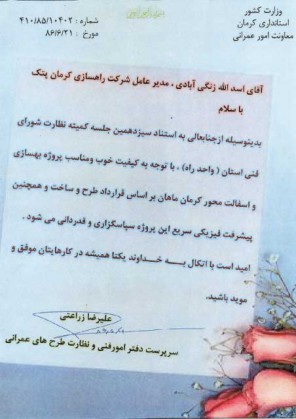 وزارت کشور
استانداری کرمان
معاونت امور عمرانی
شماره : ۴۱۰/۸۵/۱۰۴۰۲
مورخ : ۸۶/۶/۲۱
آقای اسد الله زنگی آبادی ، مدیر عامل شرکت راهسازی کرمان پتک
با سلام
بدینوسیله ازجنابعالی به استناد سیزدهمین جلسه کمیته نظارت شورای
فنی استان ( واحد راه) ، با توجه به کیفیت خوب ومناسب پروژه بهسازی
و اسفالت محور کرمان ماهان بر اساس قرارداد طرح و ساخت و همچنین
پیشرفت فیزیکی سریع این پروژه سپاسگزاری و قدردانی می شود .
امید است با اتکال به خداوند یکتا همیشه در کارهایتان موفق و
موید باشید.
علیرضا زراعتی
سرپرست دفتر امورفنی و نظارت طرح های عمرانی